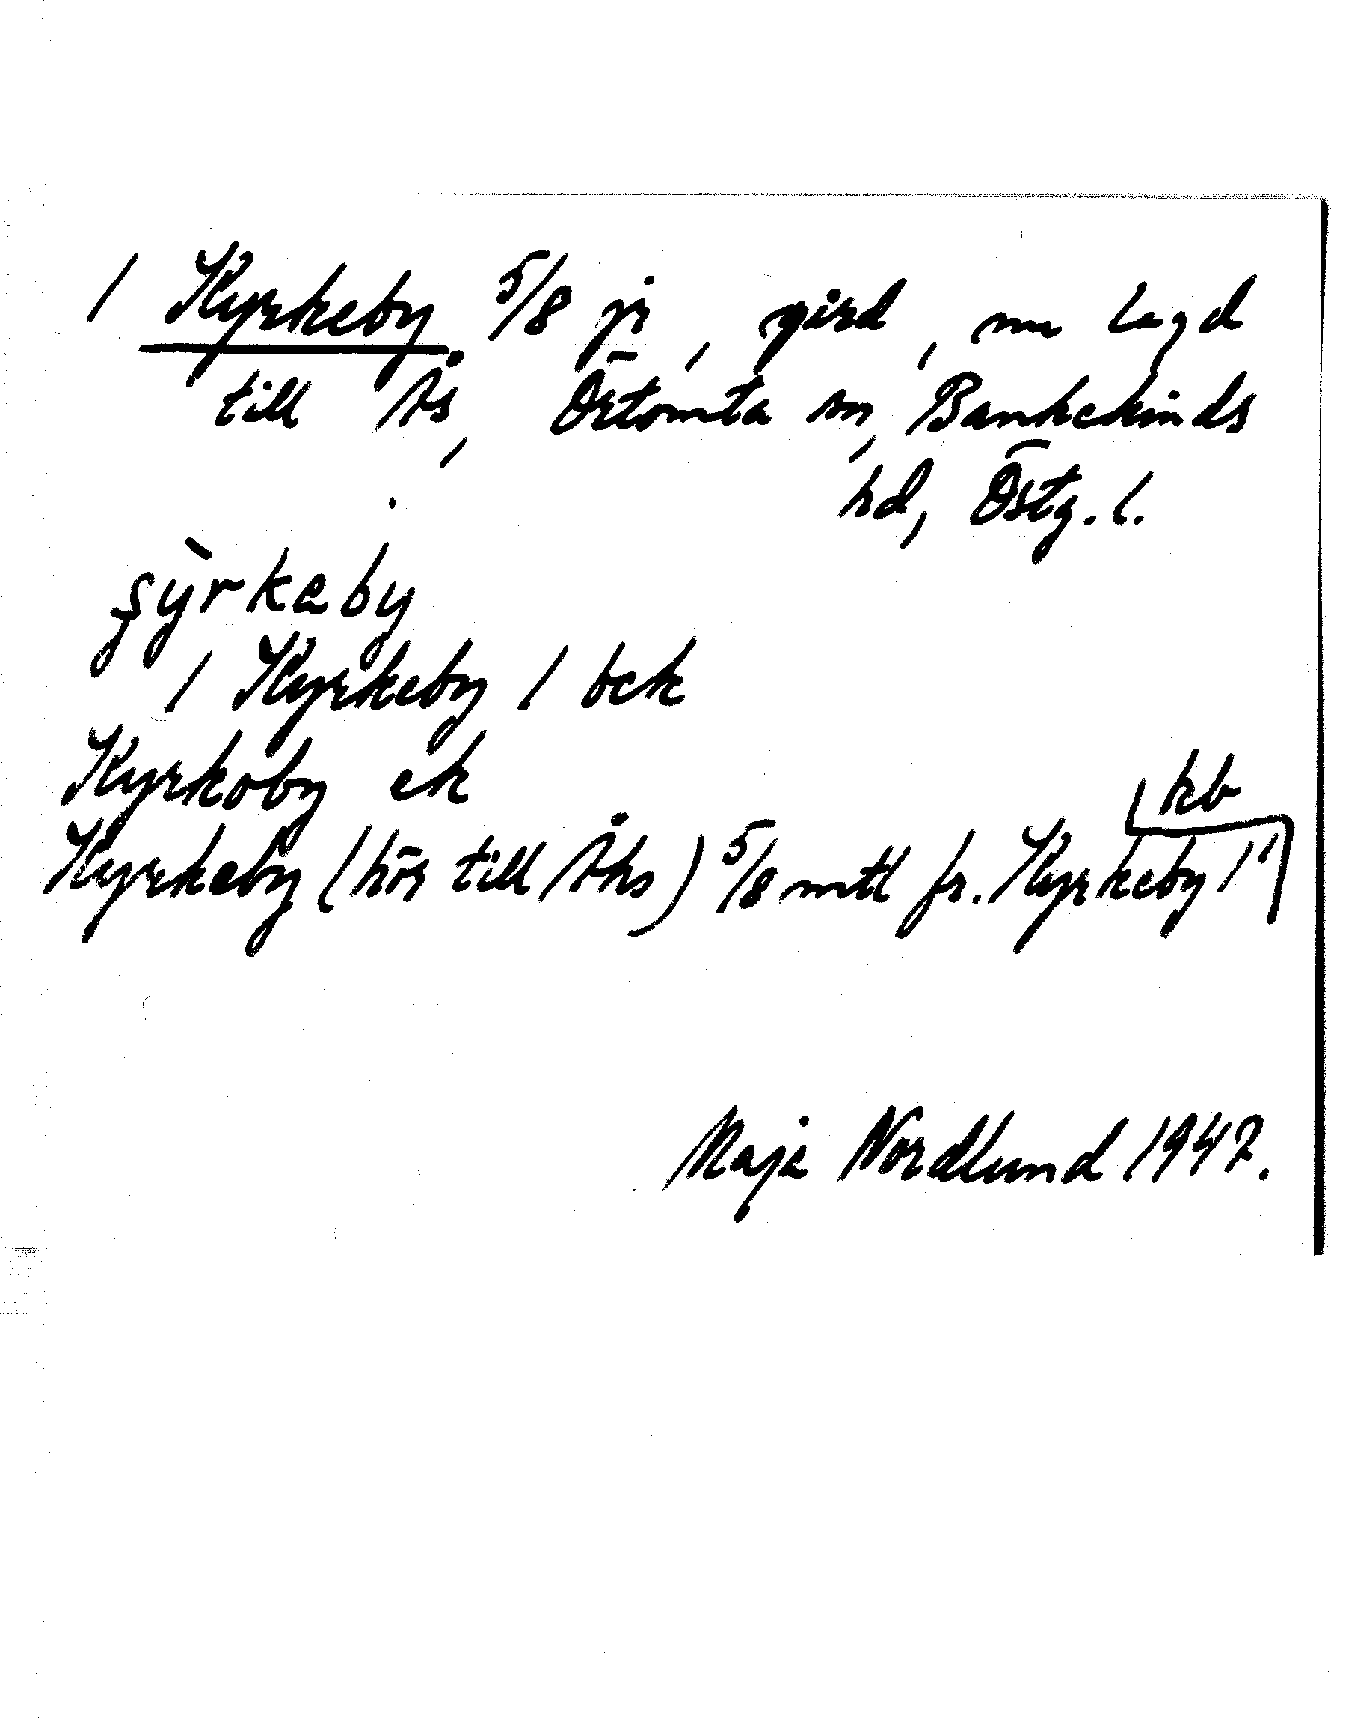 / Kyrkeby 5/8 fr, gård, nu lagd
till Ås, Örtomta sn, Bankekinds
hd, Östg. l.
ʂỳrkeby
/ Kyrkeby / bek
Kyrkoby ek
kb
Kyrkeby (hör till Åhs) 5/8 mtl fr. Kyrkeby /
Maja Nordlund 1947.